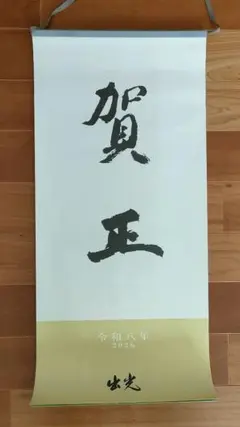 賀正
令和八年
2026
出光